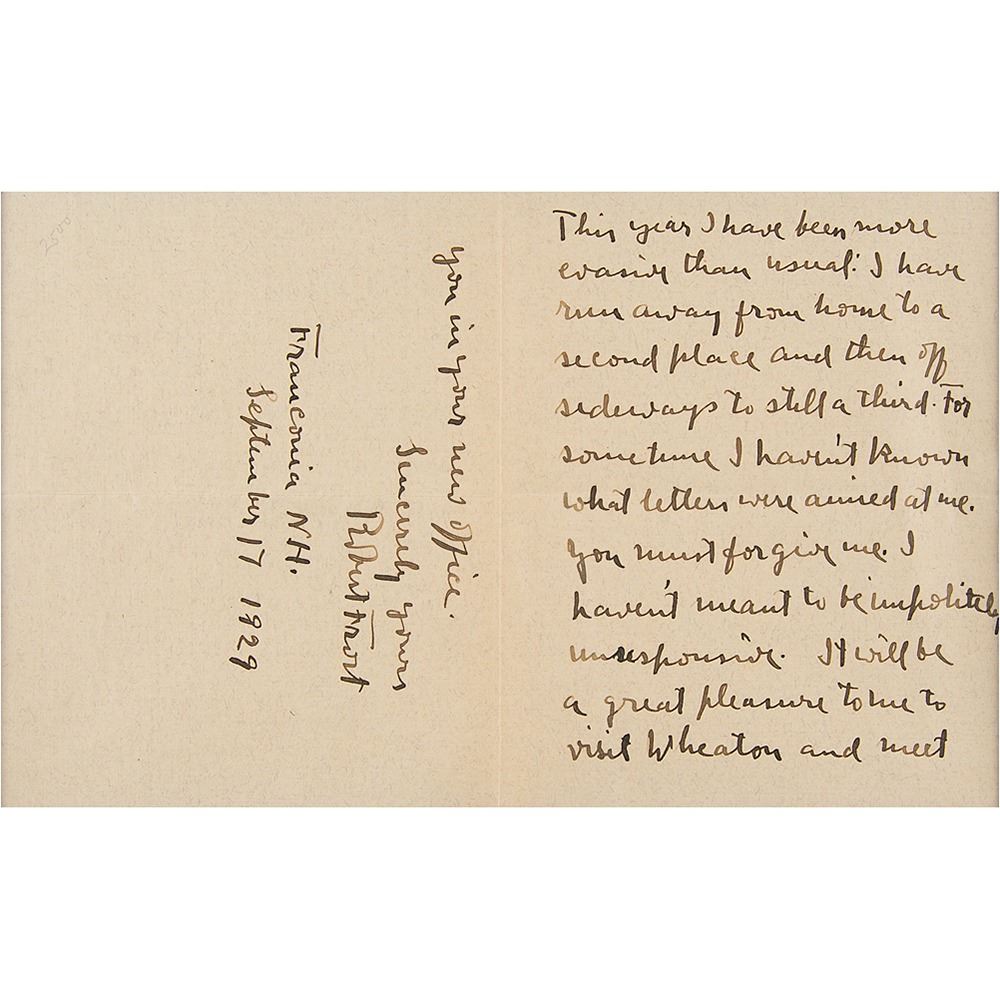 This year I have been more
evasive than usual: I have
run away from home to a
second place and then off
sideways to still a third. For
some time I haven't known
what letters were aimed at me.
You must forgive me. I
haven't meant to be impolitely
unresponsive. It will be
a great pleasure to me to
visit Wheaton and meet
you in your new office.
Sincerely yours
Robert Frost
Franconia N.H.
September 17 1929
2500